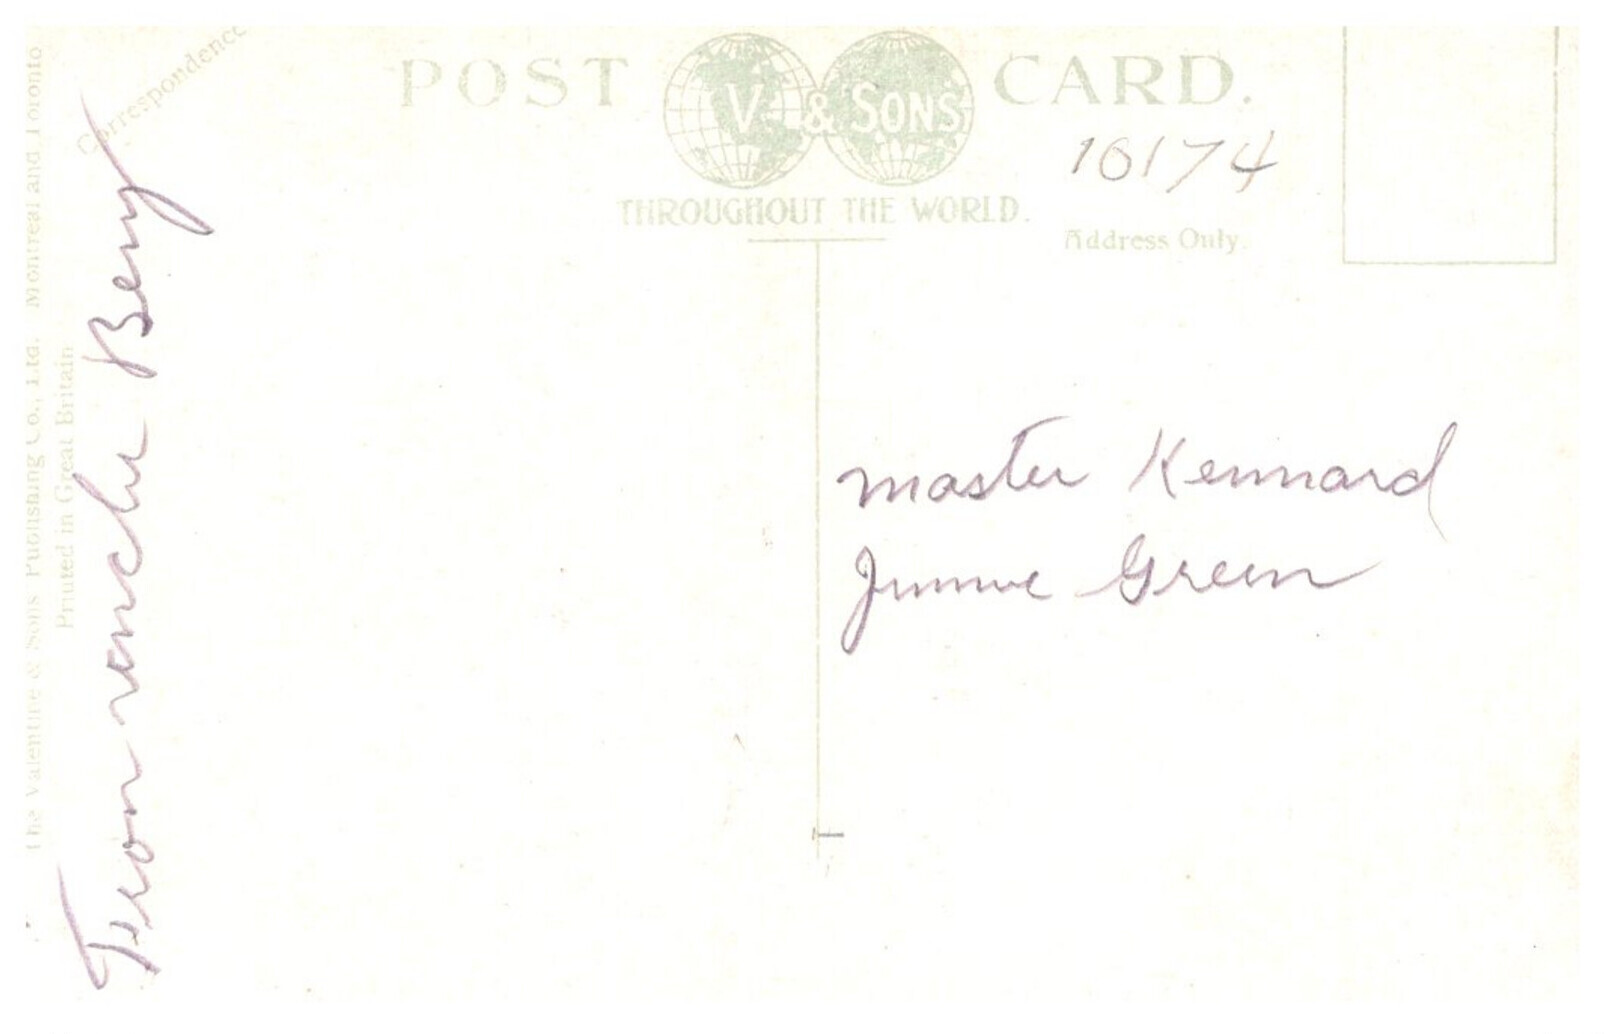 POST CARD.
V. & SONS
THROUGHOUT THE WORLD.
10174
Address Only.
Correspondence
The Valentine & Sons Publishing Co., Ltd. Montreal and Toronto
Printed in Great Britain
From Bery
Master Kennard
Green